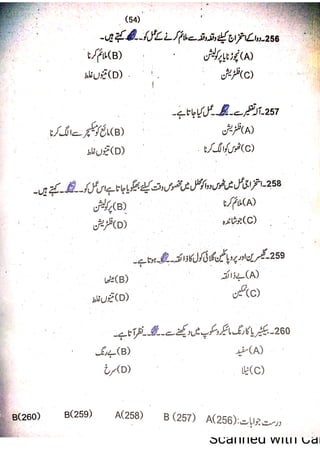 (54)
256۔ دوا کے استخراج کیلئے وقفہ وقفہ سے ملائم کرنے کے عمل کو۔۔۔۔کہتے ہیں۔
(A) نچوڑنا یا پرکولیشن (B) ملائم کرنا
(C) فلٹریشن (D) تینوں غلط
257۔ سے۔۔۔۔عمل کیا جاتا ہے۔
(A) فلٹریشن (B) مائع کو مکسچر سے الگ کرنا
(C) ٹھوس کو الگ کرنا (D) تینوں غلط
258۔ استخراجی عمل میں ٹھوس دوا کو محلل میں مخصوص وقت کیلئے بھگویا جاتا ہے اس عمل کو۔۔۔۔کہتے ہیں۔
(A) ملائم کرنا (B) پرکولیشن
(C) جوشاندہ (D) فلٹریشن
259۔ گلیسرین اور پروپائلین گلائی کول کا ذائقہ۔۔۔۔ہوتا ہے۔
(A) بے ذائقہ (B) میٹھا
(C) نمکین (D) تینوں غلط
260۔ بیکٹیریا کا رنگ مائیکروسکوپ میں دیکھنے سے۔۔۔۔نظر آتا ہے۔
(A) سفید (B) بے رنگ
(C) نیلا (D) سرخ
درست جوابات: A(256) B (257) A(258) B(259) B(260)
Scanned with Ca